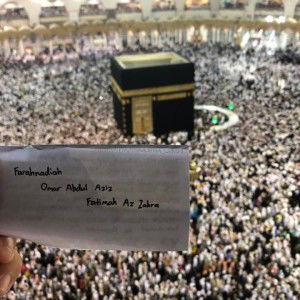 Farahnadiah
Omar Abdul Aziz
Fatimah Az Zahra